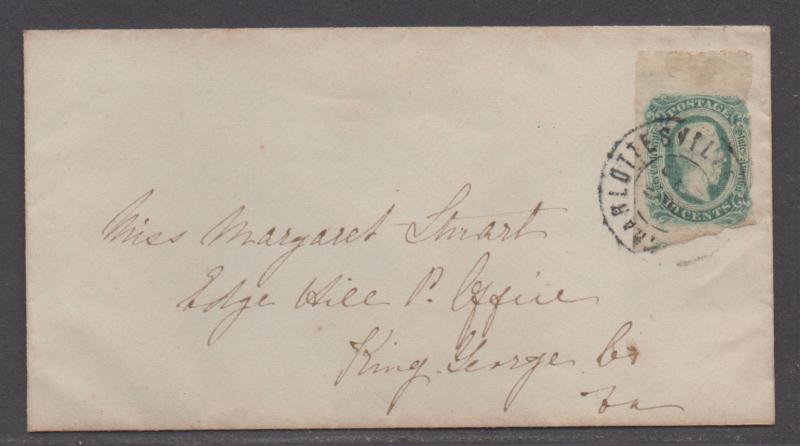 POSTAGE
TEN CENTS
CHARLOTTESVILLE
Miss Margaret Stuart
Edge Hill P. Office
King George Co
Va